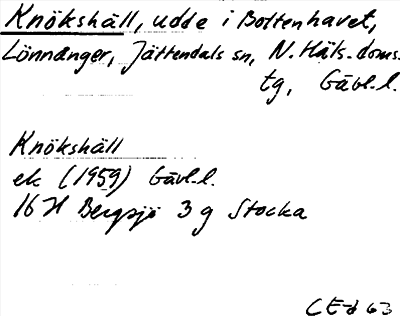 Knökshäll, udde i Bottenhavet,
Lönnånger, Jättendals sn, N. Häls. doms.
tg, Gävl.l.
Knökshäll
ek (1959) Gävl.l.
16 H Bergsjö 3 g Stocka
CE-d 63